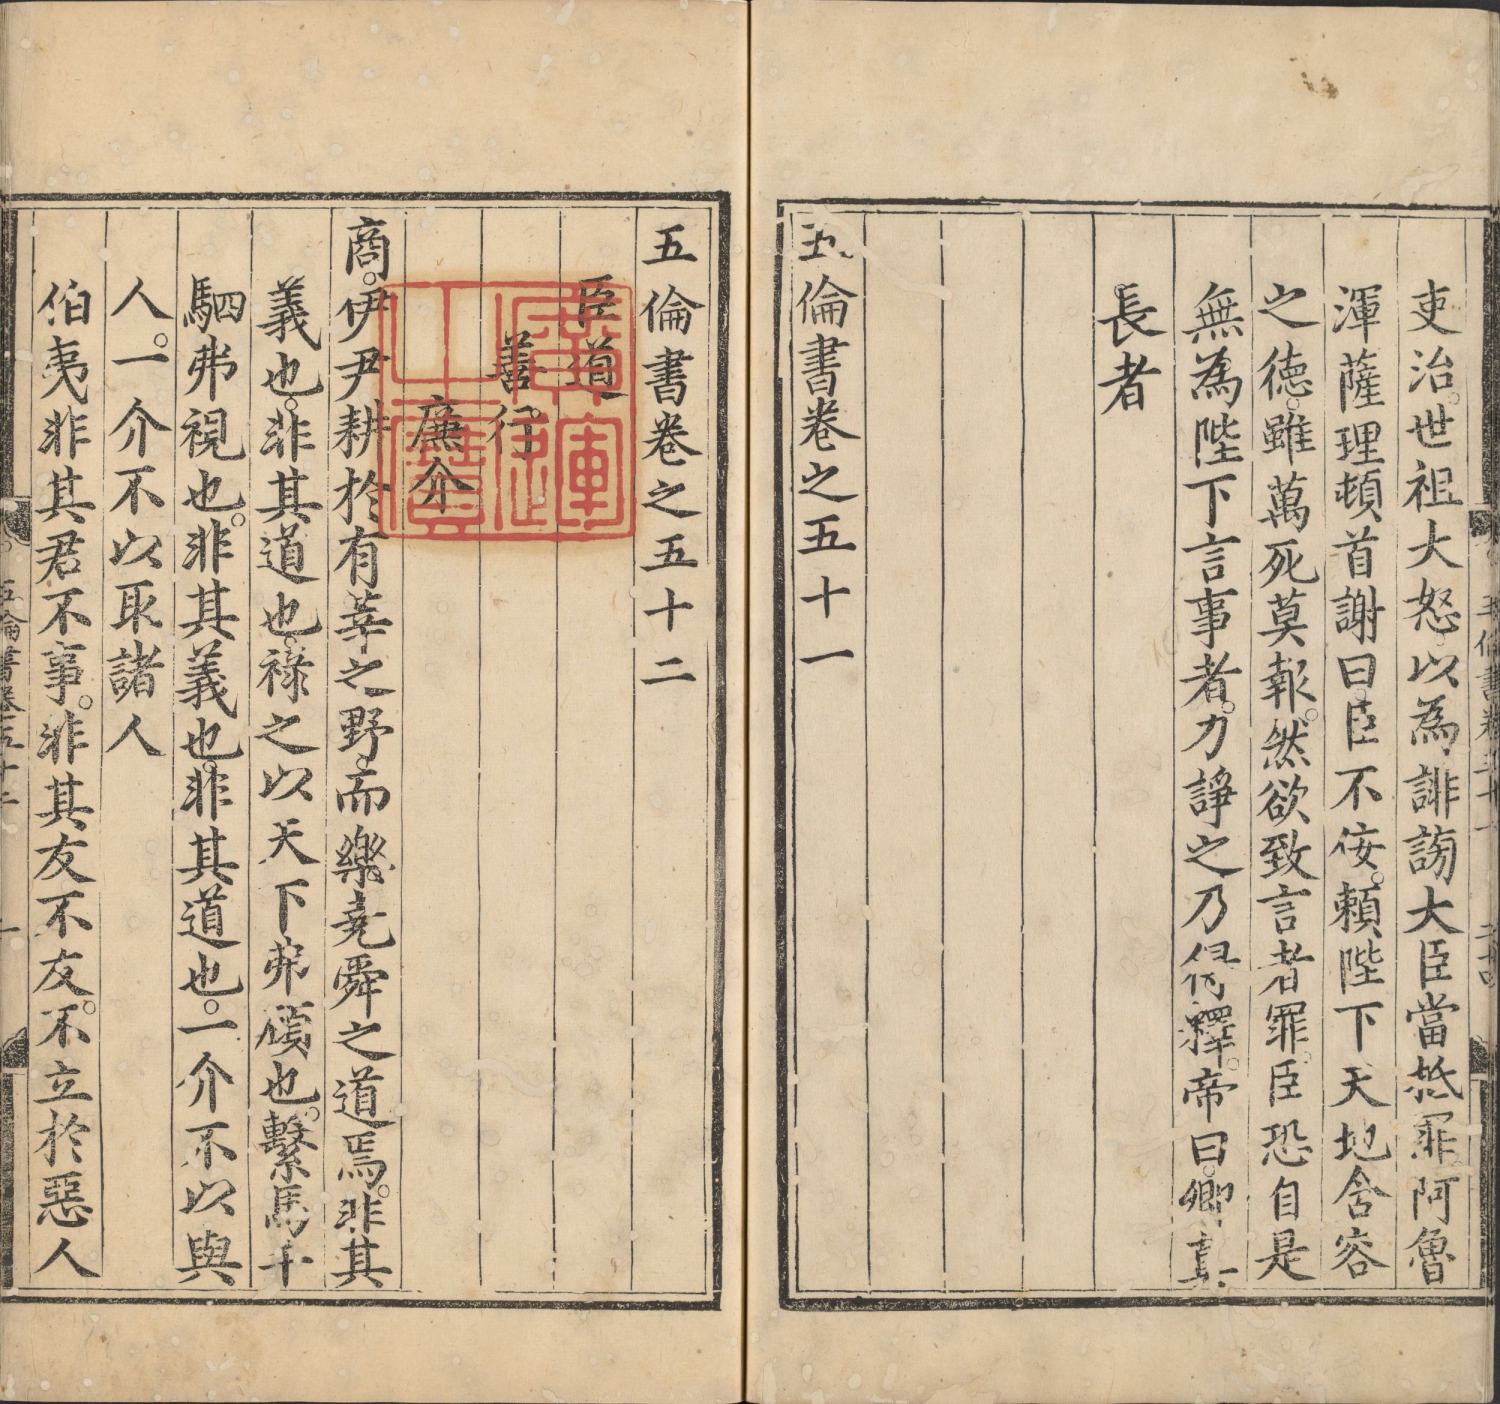 吏治世祖大怒以為誹謗大臣當抵罪阿魯
渾薩理頓首謝曰臣不佞賴陛下天地含容
之德雖萬死莫報然欲致言者罪臣恐自是
無為陛下言事者力諍之乃得釋帝曰卿真
長者
五倫書卷之五十一
五倫書卷之五十二
臣道
善行
廉介
商伊尹耕於有莘之野而樂堯舜之道焉非其
義也非其道也祿之以天下弗顧也繫馬千
駟弗視也非其義也非其道也一介不以與
人一介不以取諸人
伯夷非其君不事非其友不友不立於惡人